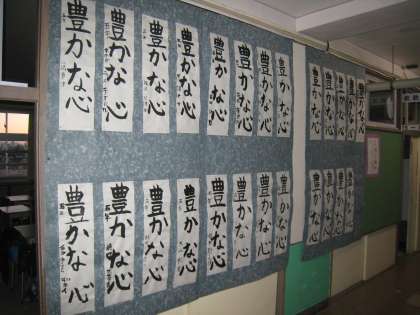 豊かな心
豊かな心
豊かな心
豊かな心
豊かな心
豊かな心
豊かな心
豊かな心
豊かな心
豊かな心
豊かな心
豊かな心
豊かな心
豊かな心
豊かな心
豊かな心
豊かな心
豊かな心
豊かな心
豊かな心
豊かな心
豊かな心
豊かな心
豊かな心
豊かな心